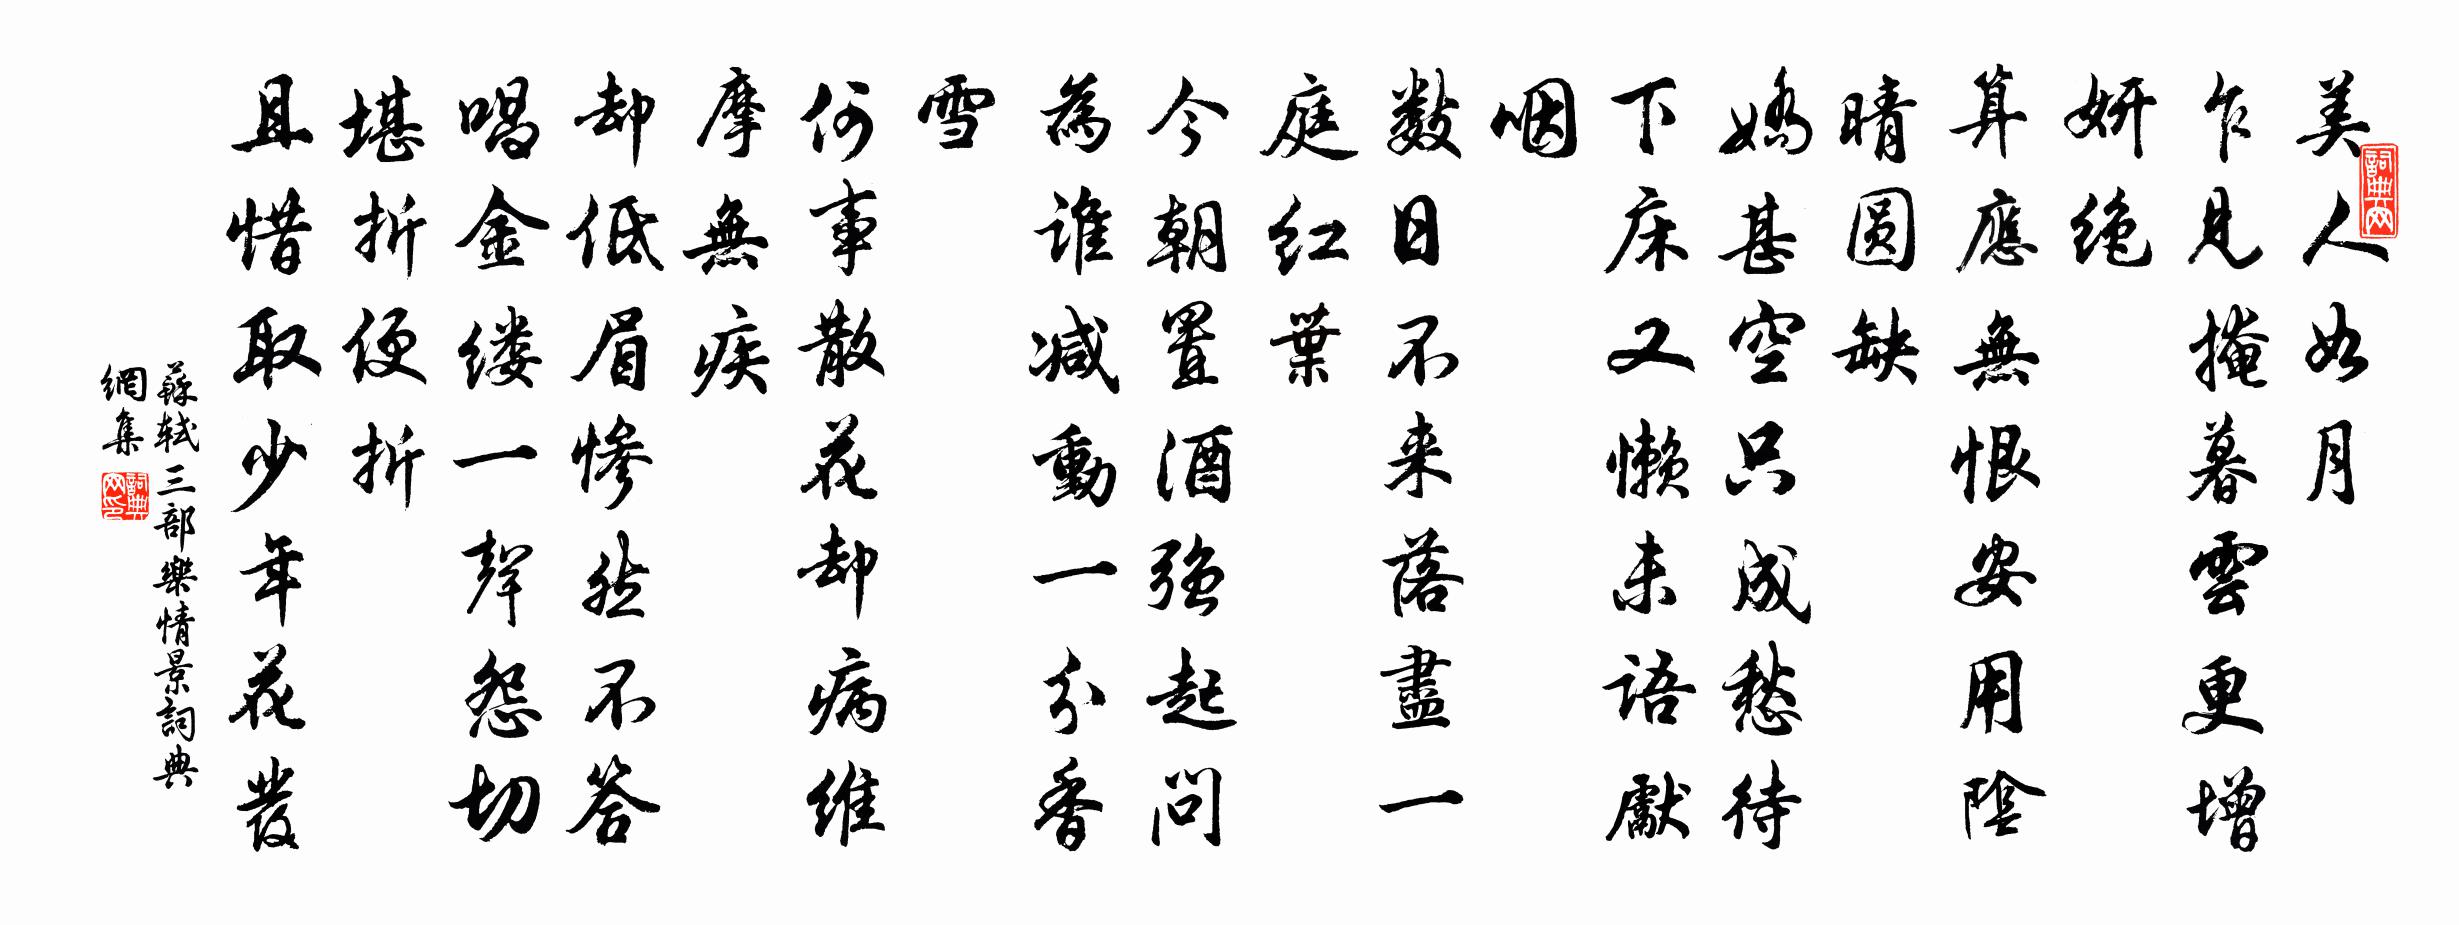 美人如月
乍见掩暮雲更增
妍绝
算應無恨安用陰
晴圆缺
嬌甚空只成愁待
下床又懒未语獻
咽
数日不来落盡一
庭红葉
今朝置酒强起问
為谁减動一分香
雪
何事散花却病维
摩無疾
却低眉惨然不答
唱金缕一聲怨切
堪折便折
且惜取少年花發
蘇轼三部樂情景詞典
網集
詞典网
詞典网印